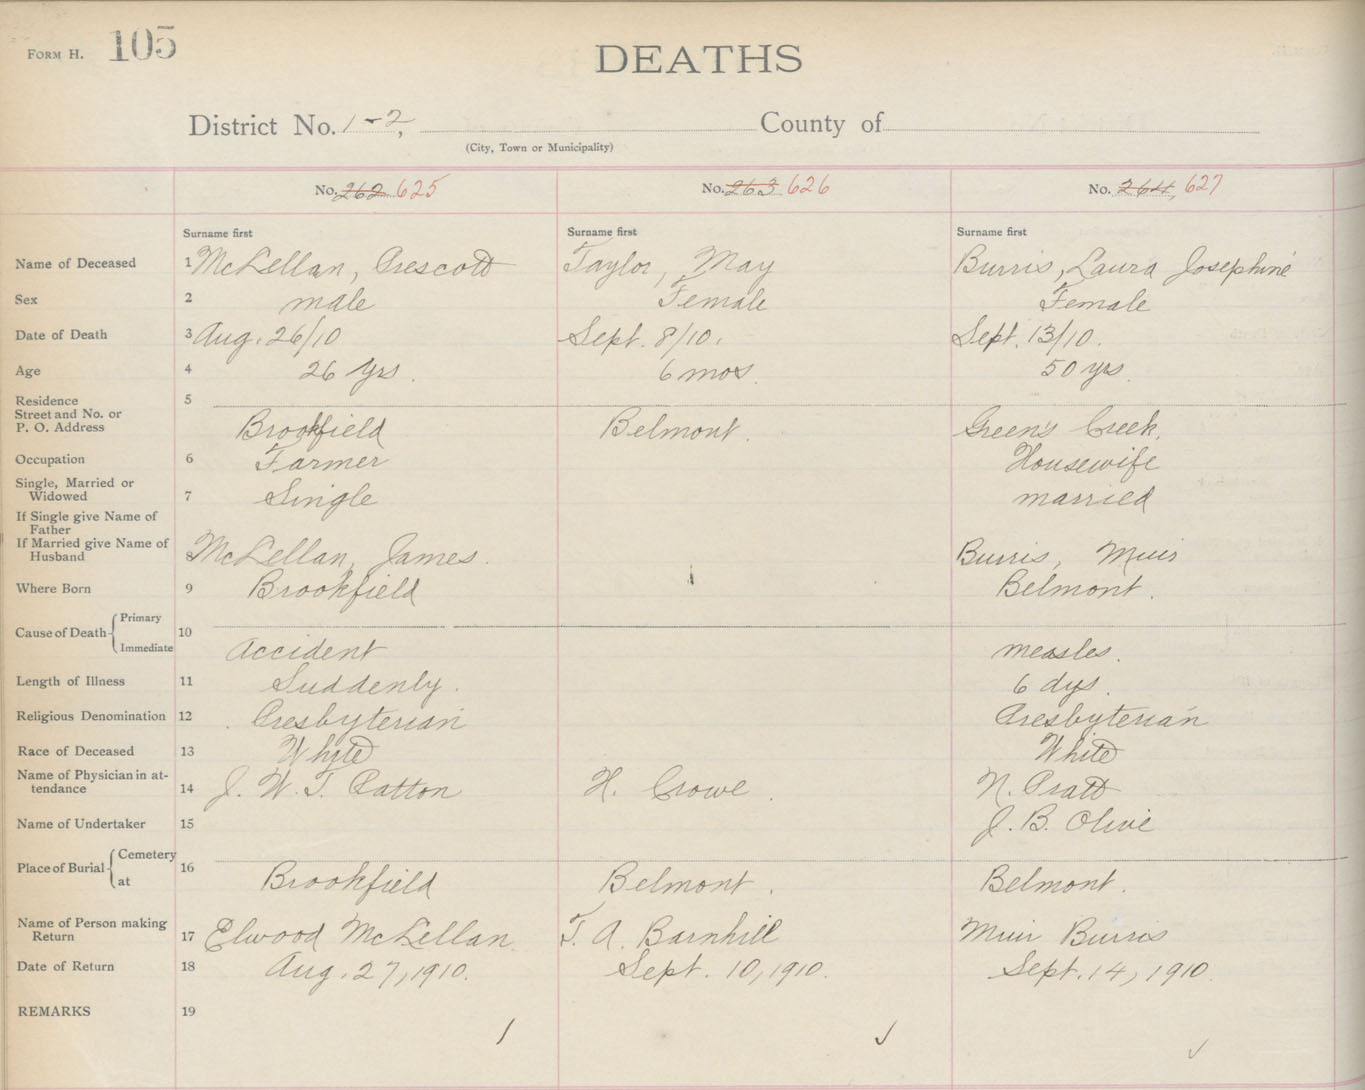 FORM H. 105
DEATHS
District No. 1-2, County of
(City, Town or Municipality)
No. 262 625 No. 263 626 No. 264, 627
Surname first Surname first Surname first
Name of Deceased 1 McLellan, Prescott Taylor, May Burris, Laura Josephine
Sex 2 male Female Female
Date of Death 3 Aug. 26/10 Sept. 8/10. Sept. 13/10.
Age 4 26 yrs. 6 mos. 50 yrs.
Residence 5
Street and No. or
P. O. Address Brookfield Belmont. Green's Creek.
Occupation 6 Farmer Housewife
Single, Married or
Widowed 7 Single married
If Single give Name of
Father
If Married give Name of
Husband 8 McLellan, James. Burris, Muir
Where Born 9 Brookfield Belmont.
Cause of Death Primary 10
Immediate Accident measles.
Length of Illness 11 Suddenly. 6 dys.
Religious Denomination 12 Presbyterian Presbyterian
Race of Deceased 13 White White
Name of Physician in at-
tendance 14 J. W. T. Patton H. Crowe. N. Pratt
Name of Undertaker 15 J. B. Olive
Place of Burial Cemetery 16
at Brookfield Belmont. Belmont.
Name of Person making
Return 17 Elwood McLellan. T. A. Barnhill Muir Burris
Date of Return 18 Aug. 27, 1910. Sept. 10, 1910. Sept. 14, 1910.
REMARKS 19